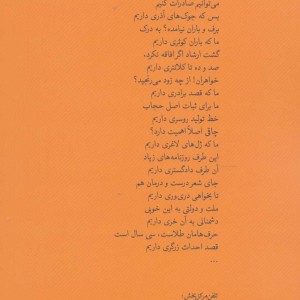 می‌توانیم صادرات کنیم
بس که جوک‌های آذری داریم
برف و باران نیامده؟ به درک
ما که باران کوثری داریم
گشت ارشاد اگر افاقه نکرد،
صد و ده تا کلانتری داریم
خواهران! از چه زود می‌رنجید؟
ما که قصد برادری داریم
ما برای ثبات اصل حجاب
خط تولید روسری داریم
چاقی اصلاً اهمیت دارد؟
ما که ژل‌های لاغری داریم
این طرف روزنامه‌های زیاد
آن طرف دادگستری داریم
جای شعر درست و درمان هم
تا بخواهی دری‌وری داریم
ملت و دولتی به این خوبی
دشمنانی به آن خری داریم
حرف‌هامان طلاست، سی سال است
قصد احداث زرگری داریم
...
تلفن مرکز پخش: